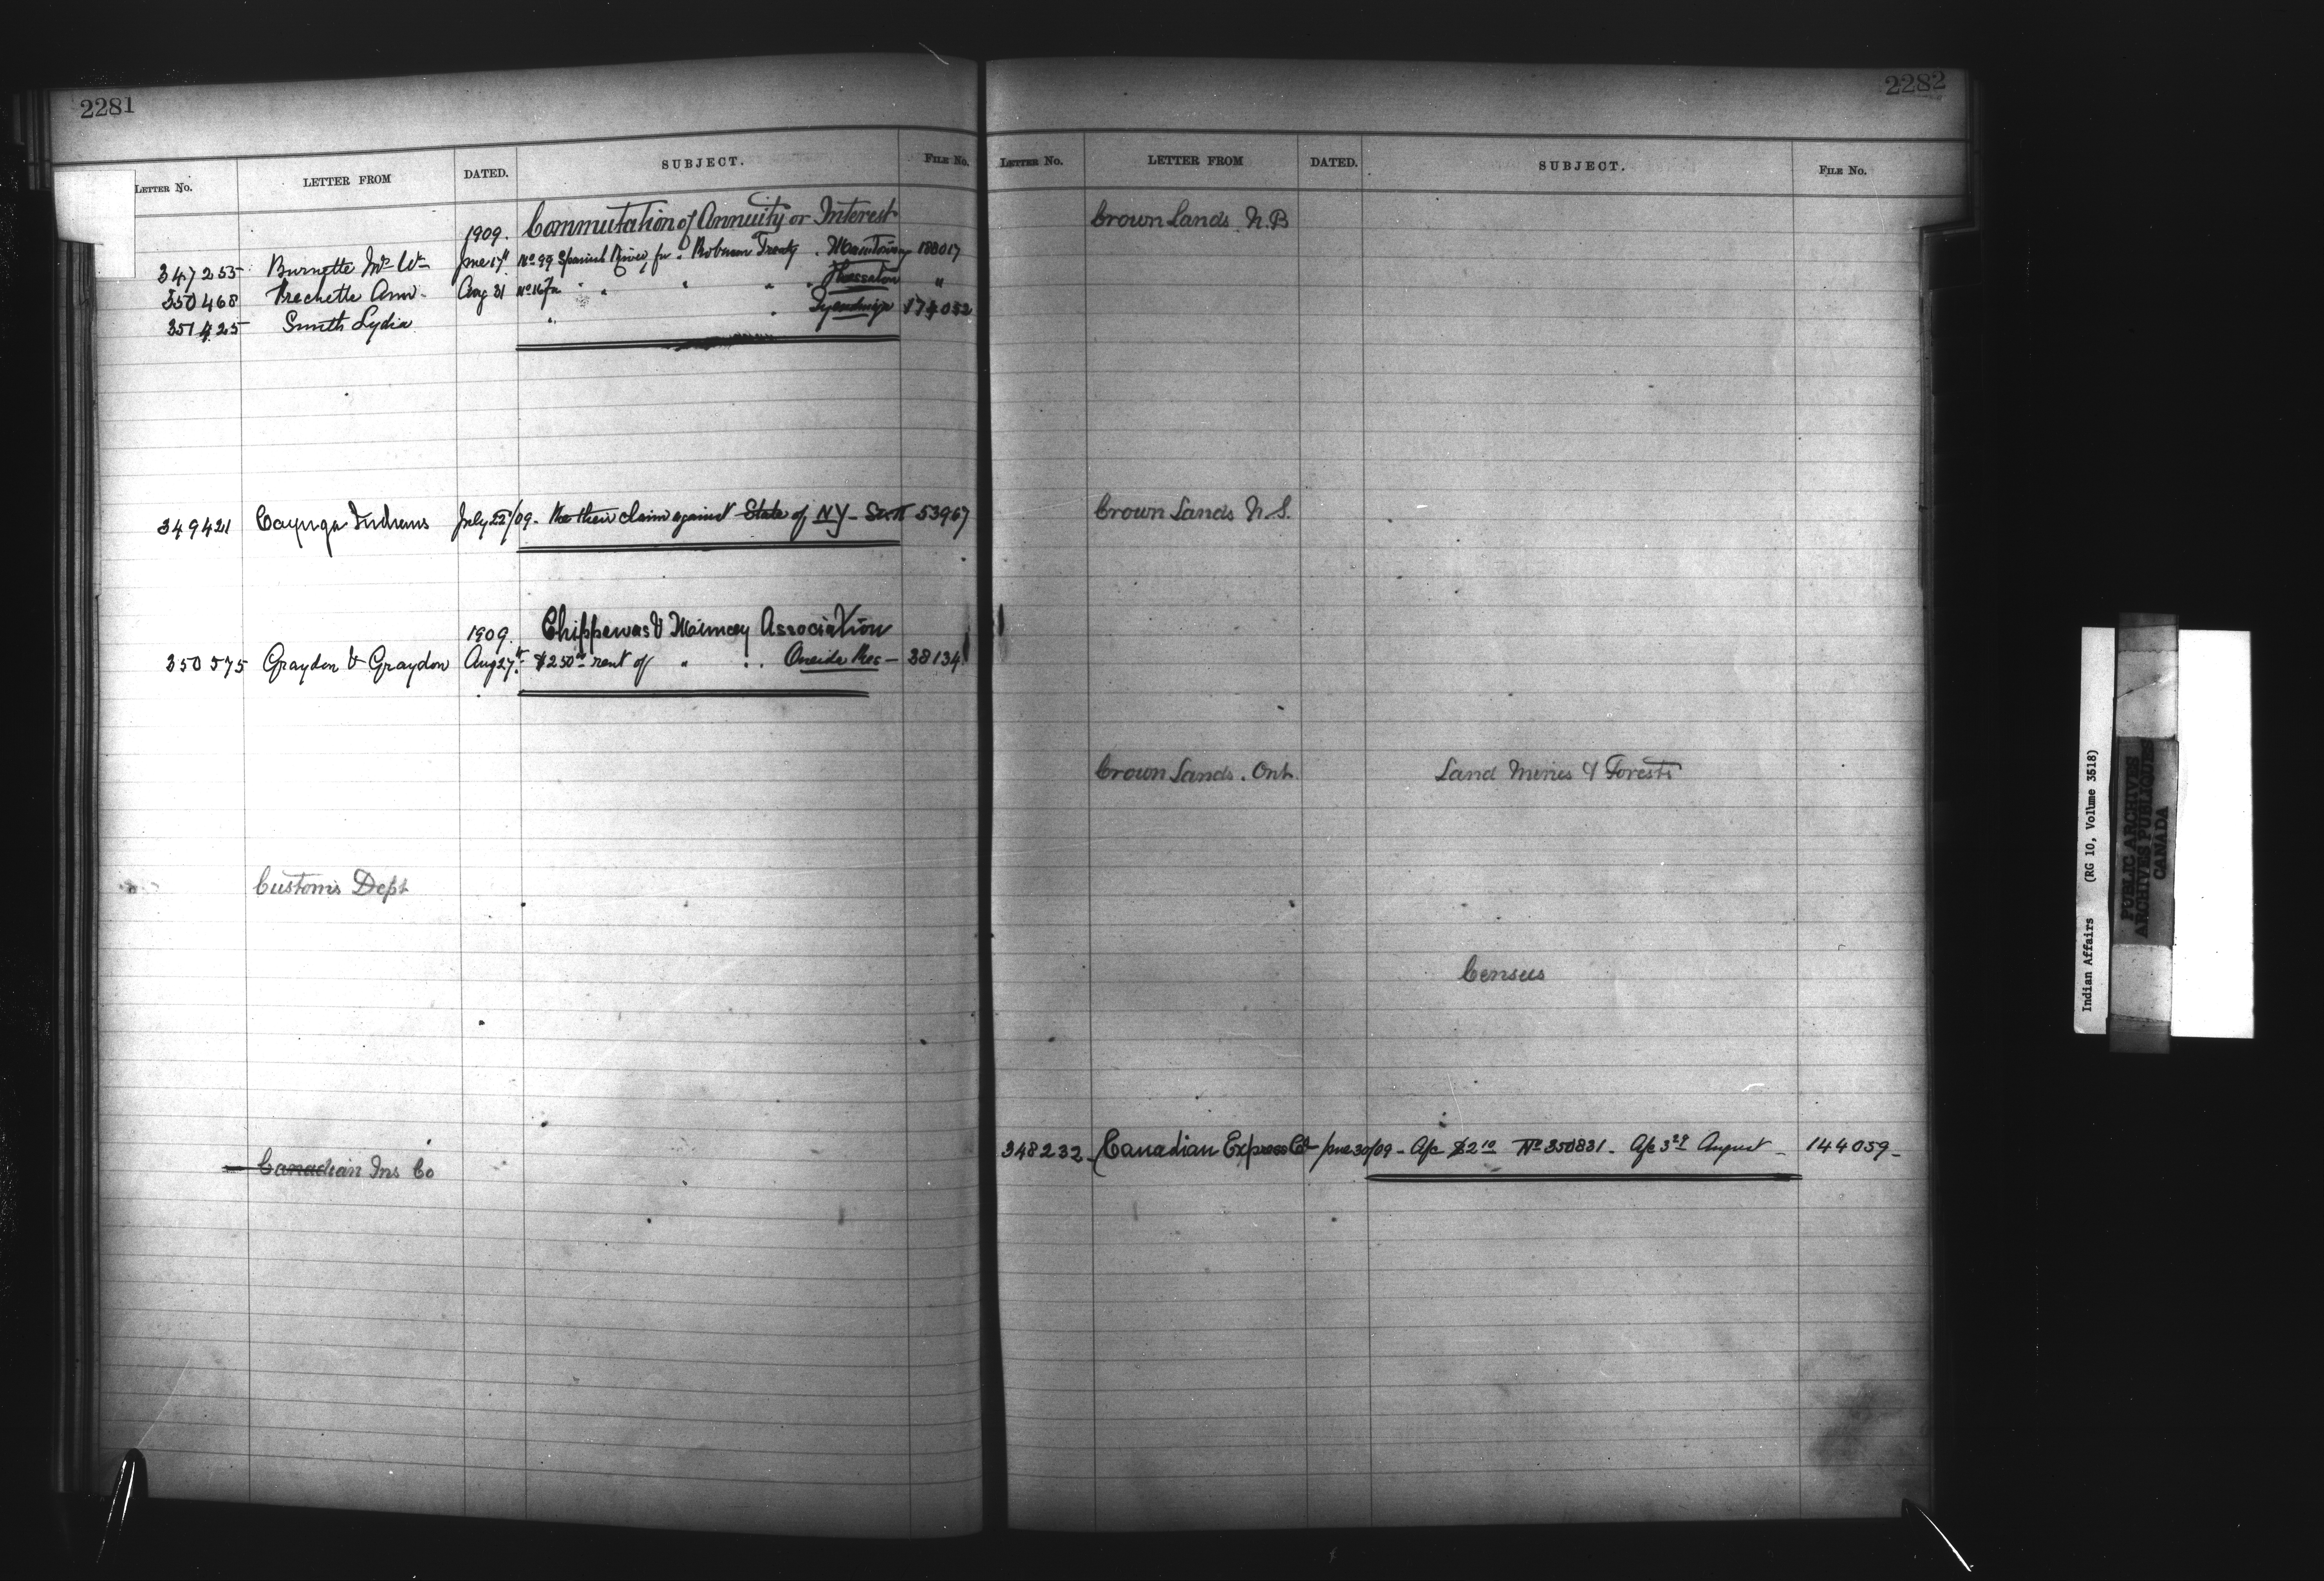 2281
LETTER No. LETTER FROM DATED. SUBJECT. FILE No.
1909. Commutation of Annuity or Interest
347255 Burnette Mrs Wm June 17th No 99 Spanish River, Robinson Treaty. Manitowng 188017
350468 Frechette Ann. Aug 31 No 167a " " " " Thessalon "
351425 Smith Lydia " " Tyendinaga 174052
349421 Cayuga Indians July 22/09. Re their claim against State of NY - 53967
1909. Chippewas & Muncey Association
350575 Graydon & Graydon Aug 27th $250 00 rent of " " Oneida Res - 38134
Customs Dept
Canadian Ins Co
2282
LETTER No. LETTER FROM DATED. SUBJECT. FILE No.
Crown Lands. N.B
Crown Lands N.S.
Crown Lands. Ont. Land Mines & Forests
Census
348232 - Canadian Express Co - June 30/09 - A/c $2 10 No 350831 - A/c 3 29 August - 144059 -
Indian Affairs (RG 10, Volume 3518)
PUBLIC ARCHIVES
ARCHIVES PUBLIQUES
CANADA